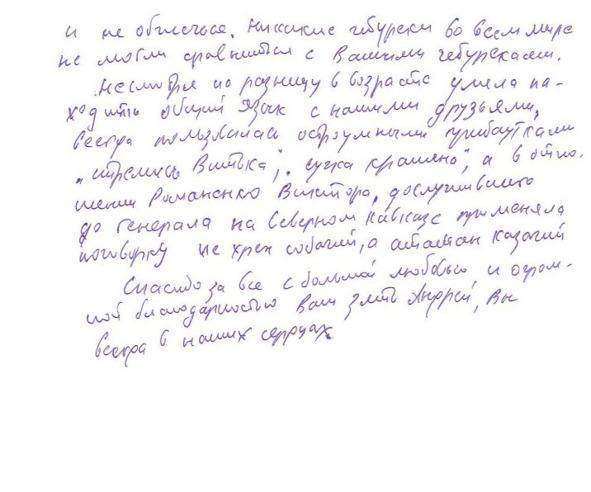 и не обжечься. Никакие чебуреки во всем мире
не могли сравниться с Вашими чебуреками.
Несмотря на разницу в возрасте умела на-
ходить общий язык с нашими друзьями,
всегда пользовалась остроумными прибаутками
Витька", сучка крашено", а в отно-
шении Романенко Виктора, дослужившего
до генерала на Северном Кавказе применяла
поговорку не хрен собачий, а атаман казачий
Спасибо за все с большой любовью и огром-
ной благодарностью Ваш зять Андрей, Вы
всегда в наших сердцах